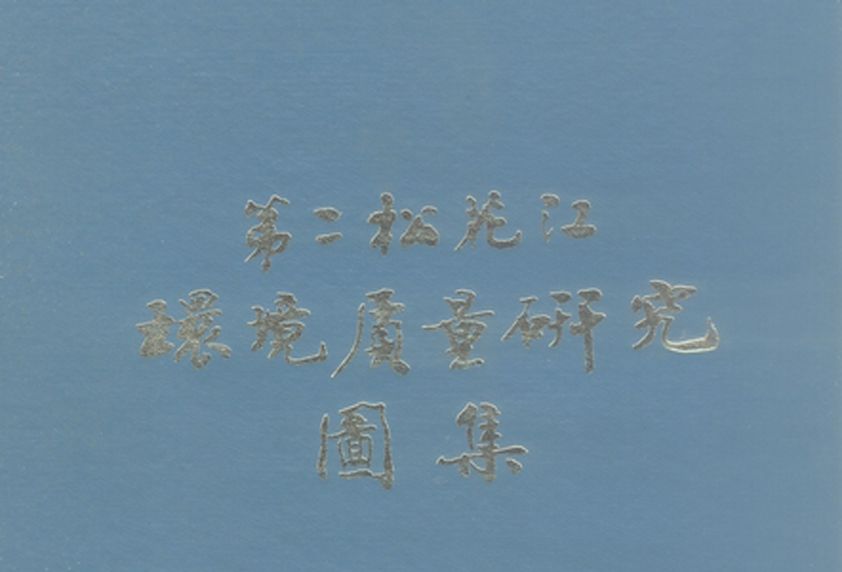 第二松花江
環境质量研究
圖集